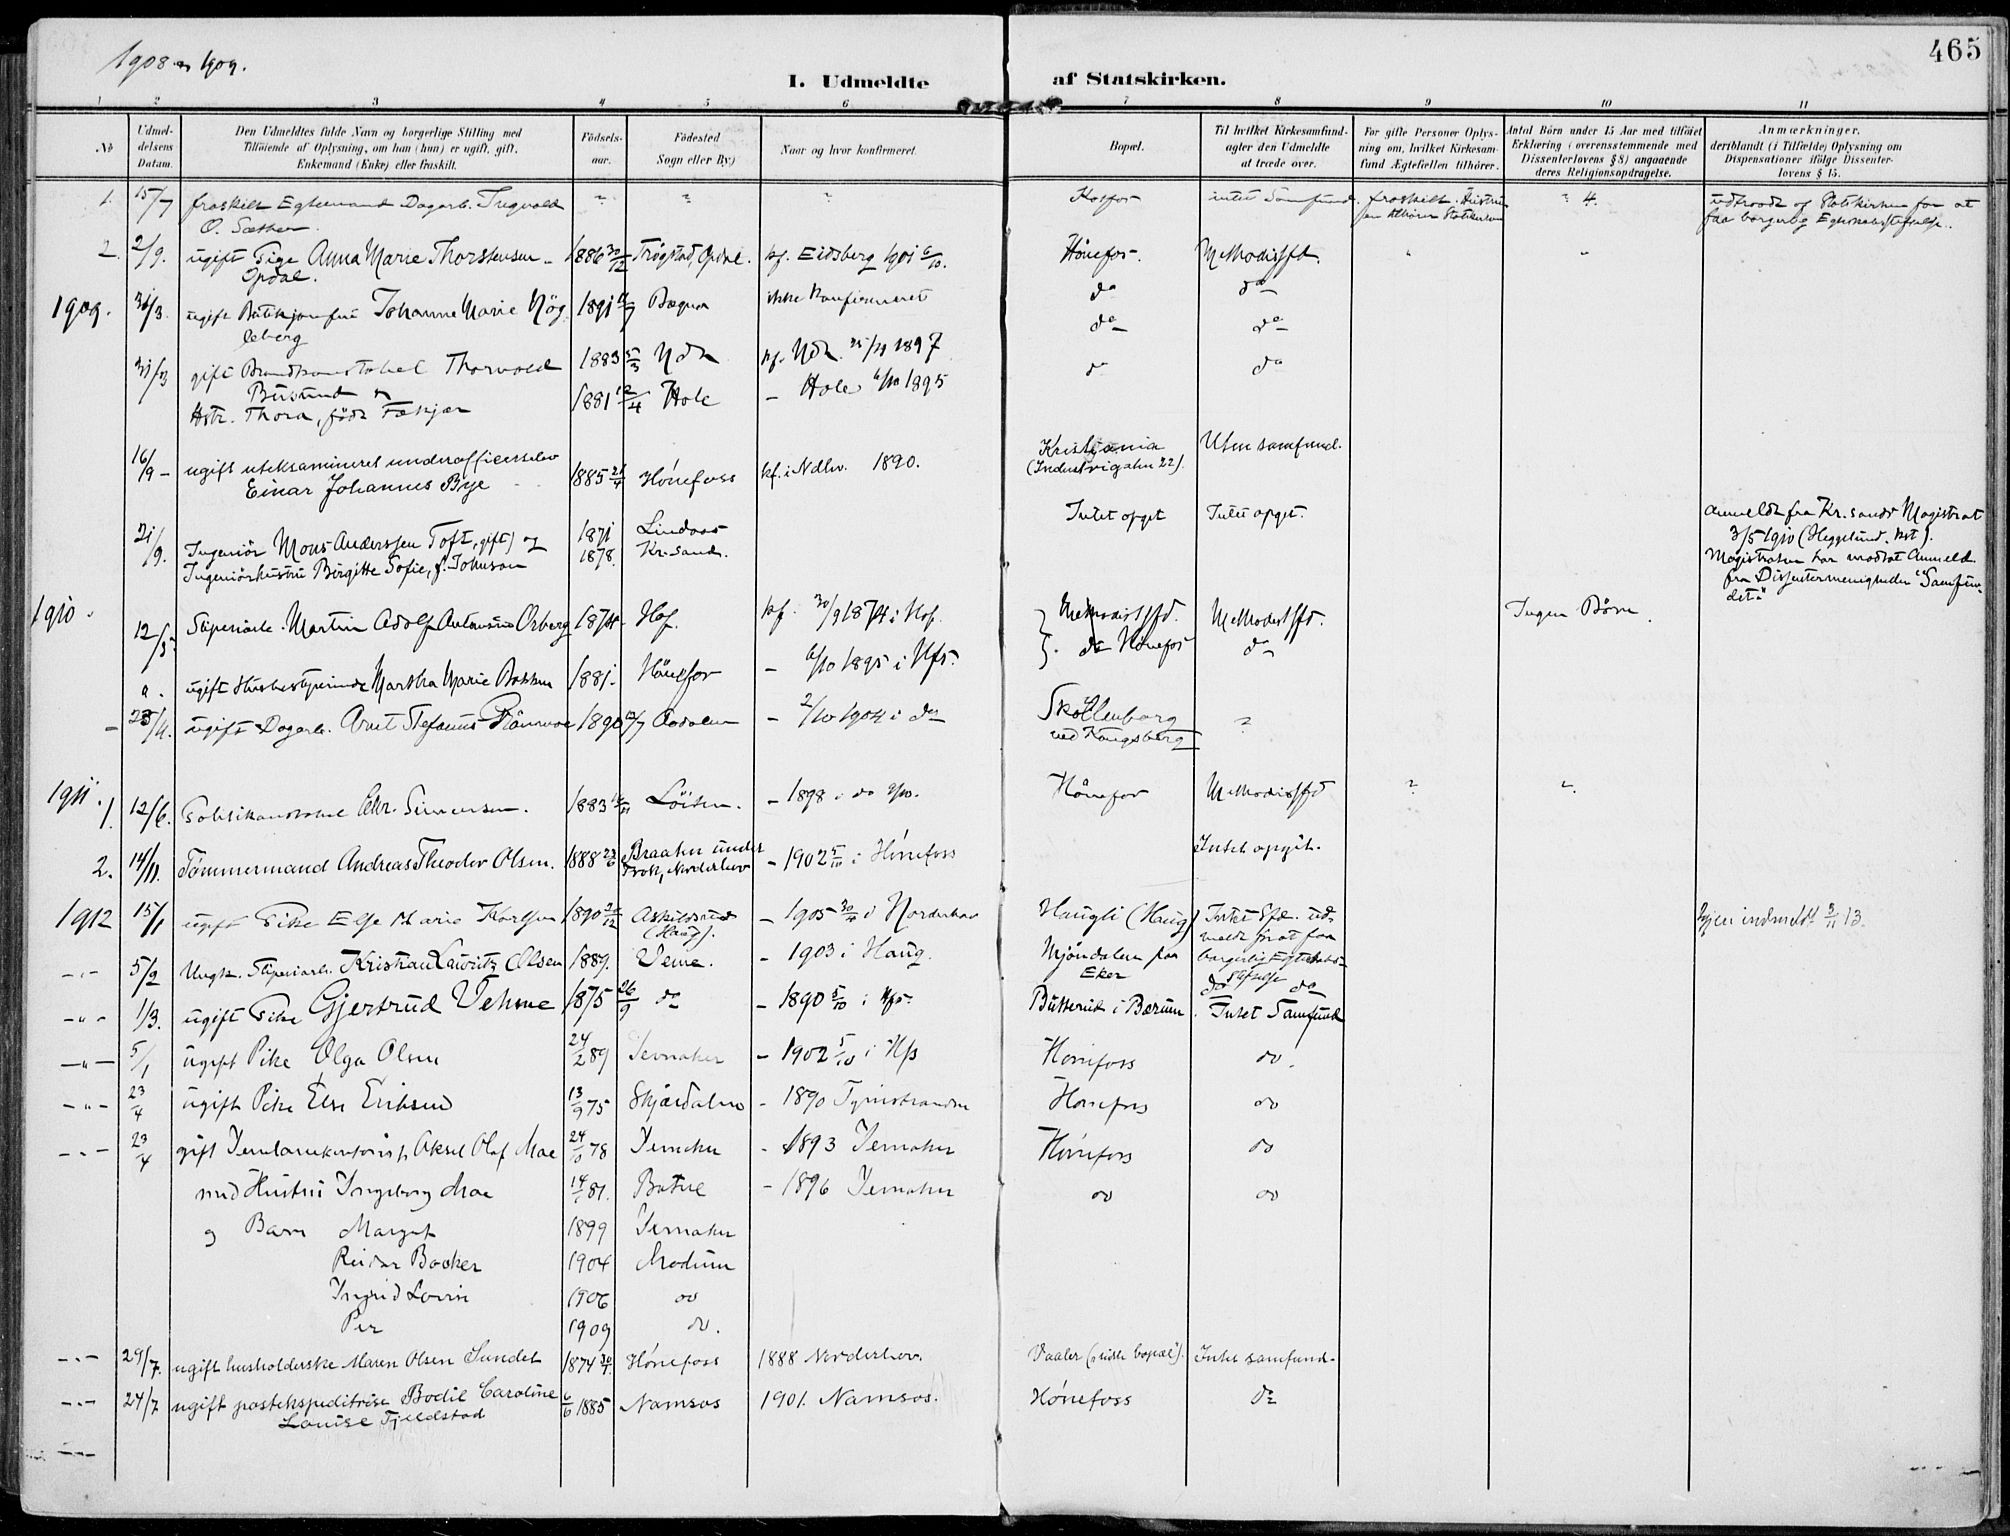 1908 og 1909.
465
I. Udmeldte af Statskirken.
1 2 3 4 5 6 7 8 9 10 11
No
Udmeldelsens Datum.
Den Udmeldtes fulde Navn og borgerlige Stilling med Tilføiende af Oplysning, om han (hun) er ugift, gift, Enkemand (Enke) eller fraskilt.
Fødselsaar.
Fødested Sogn eller By)
Naar og hvor konfirmeret.
Bopæl.
Til hvilket Kirkesamfund agter den Udmeldte at træde over.
For gifte Personer Oplysning om, hvilket Kirkesamfund Ægtefællen tilhører.
Antal Børn under 15 Aar med tilføiet Erklæring (overensstemmende med Dissenterlovens § 8) angaaende deres Religionsopdragelse.
Anmærkninger, deriblandt (i Tilfælde) Oplysning om Dispensationer ifølge Dissenterlovens § 15.
1. 15/7 fraskilt Egtemand Dagarb. Ingvald " " " intet Samfund. fraskilt. " 4.
O. Sæther
2. 2/9. ugift Pige Anna Marie Thorstensen 1886 30/12 Trøgstad, Opdal. kf. Eidsberg 1901 6/10. Hønefos. Methodistsfd. " "
Opdal.
1909. 31/3. ugift Butikjomfru Johanne Marie Nög 1891 Bægna ikke konfirmeret do do
leberg do do
31/3 gift Brandkonstabel Thorvald 1883 5/3 Ndh kf. Ndh. 1897 do do
Busund og 1881 12/4 Hole – Hole 6/10 1895
Hstr. Thora, født
16/9 – ugift uteksamineret underofficerselev Kristiania Uten samfund.
Einar Johannes Bye 1885 21/4 Hønefoss kf. i Ndhv. 1890. (Industrigaten 22).
21/9. Ingeniør Mons Anderssen Toft, gift) og 1871 Lindaas Intet opget Intet opget. Anmeldt fra Kr.sands Magistrat
Ingeniørhustru Birgitte Sofie, f. Johnson 1878. Kr.sand. 3/5 1910 (Heggelund, kst).
Magistraten har modtat Anmeld.
fra Dissentermenigheden "Samfun-
det."
1910. 12/3 Sliperiarb. Martin Adolf Antonius Orberg 1874 Hof. kf. 30/9 18 i Hof. Methodistsfd. Methodistsfd. Ingen Børn.
do Hønefos do
a. ugift Husbestyrerinde Martha Marie Bakken 1881. Hönefos – 6/10 1895 i Hfs.
– 25/4. ugift Dagarb. Arnt Stefanus 1890 Aadalen – 2/10 1904 i do Skollenborg "
ved Kongsberg
1911. 1. 12/6. Politikonstabel Chr. Simensen. 1883 Löiten. – 1898 i do Hønefos Methodistsfd " "
2. 14/11. Tömmermand Andreas Theodor Olsen. 1888 23/6 Braaten under – 1902 5/10 i Hönefoss Intet opgit.
Norderhov
1912 15/1 ugift Pike Else Marie Karlsen 1890 Askildsrud – 1905 i Norderhov Haugli (Haug) Intet Sfd. ud- Igjen indmeldt 3/11 13.
(Haug). meldt for at faa
–"– 5/2 Ungk. Sliperiarb. Kristian Lauritz Olsen 1889. Veme. – 1903 i Haug. Mjøndalen paa borgerlig Egteskabs-
Eker stiftelse
do do
–"– 1/3. ugift Pike Gjertrud Vehme 1875 26/9 do – 1890 5/10 i Hfs. Butterud i Bærum. Intet Samfund
–"– 5/1 ugift Pike Olga Olsen 24/2 89 Jevnaker – 1902 5/10 i Hfs Hønefoss do.
–"– 23/4 ugift Pike Else Eriksen 13/9 75 Skjærdalen – 1890 Tyristranden Hønefoss do
–"– 23/4 gift Aksel Olaf Moe 24/10 78 Jevnaker – 1893 Jevnaker Hønefoss do
med Hustru Ingeborg Moe 81. Botne – 1896 Jevnaker do do
og Barn Margit 1899 Jevnaker
Reidar Backer 1904 Modum
Ingrid Lovise 1906 do
Per 1909 do.
–"– 29/7. ugift husholderske Maren Olsen Sundet 1874 Hønefoss 1888 Norderhov. Vaaler (sidste bopæl). Intet samfund.
–"– 24/7 ugift postekspeditrise Bodil Caroline 6/6 1885 Namsos 1901. Namsos. Hønefoss do
Louise Fjeldstad
–"–